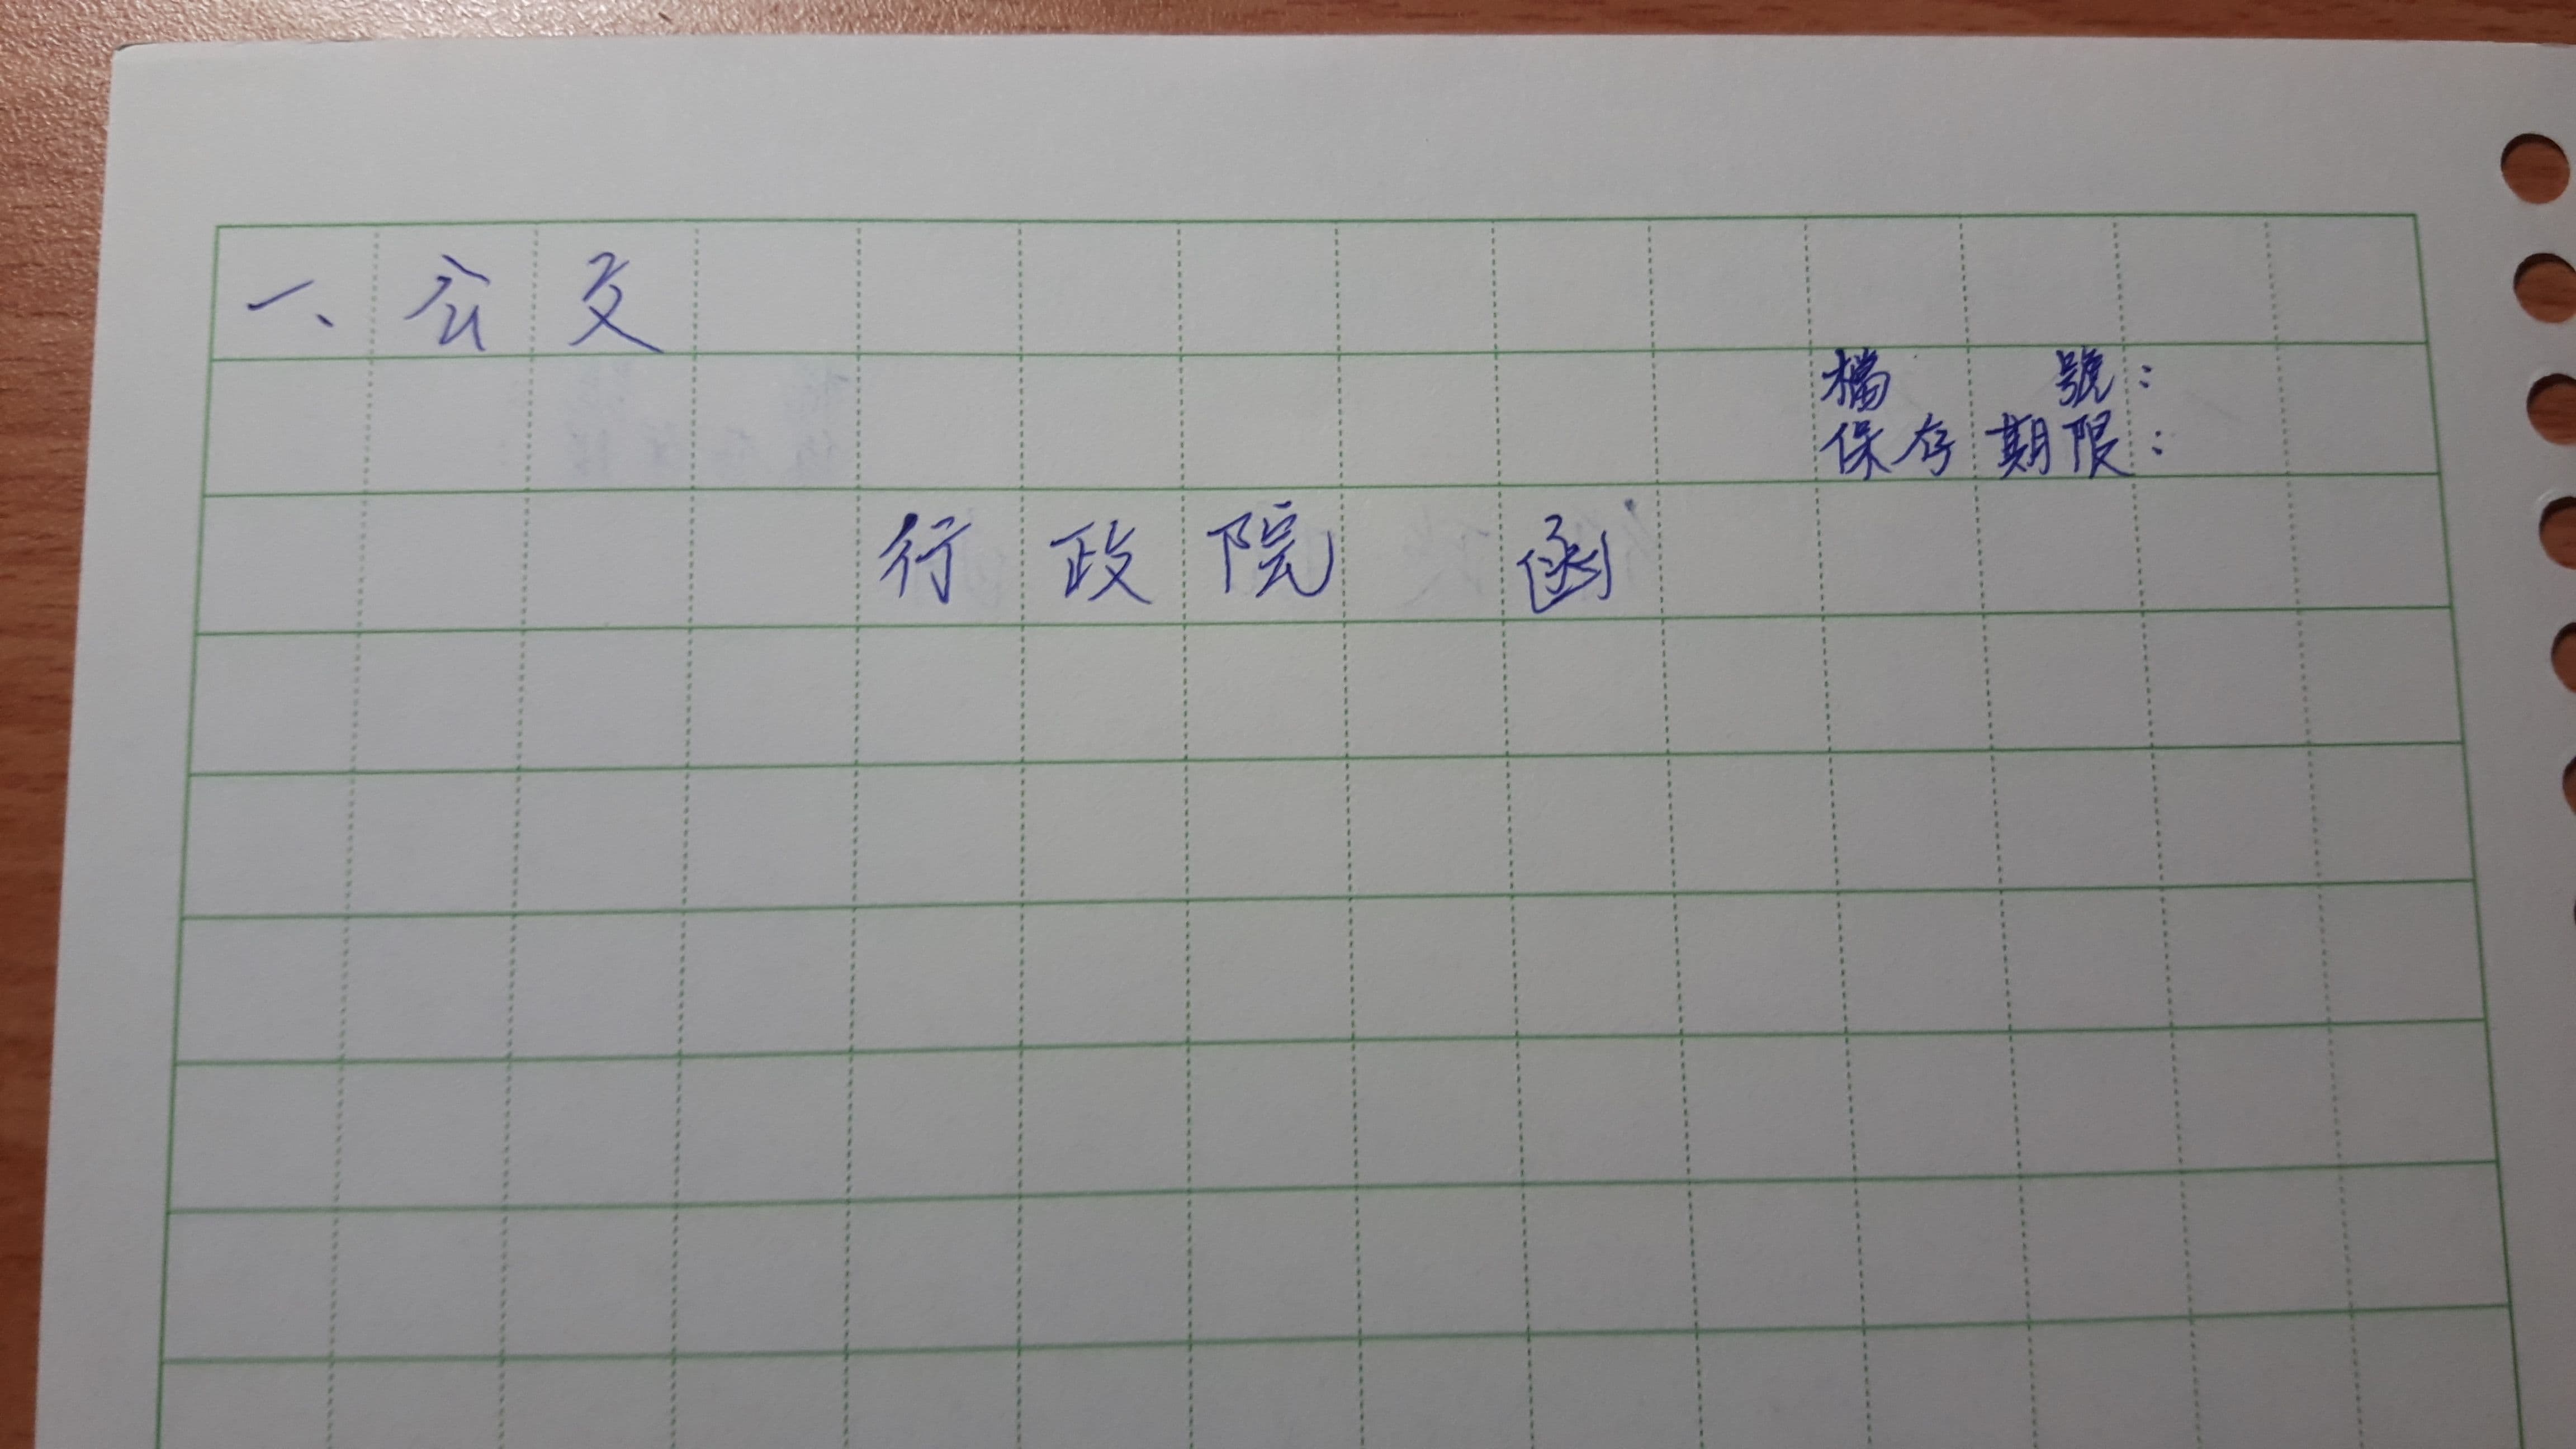 一、公文
檔　　號：
保存期限：
行政院　函